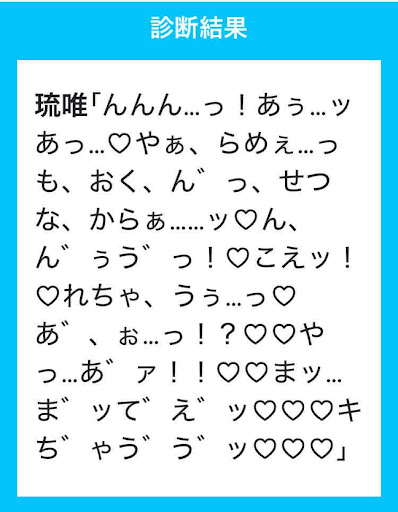 診断結果
琉唯｢んんん…っ！あぅ…ッ
あっ…♡やぁ、らめぇ…っ
も、おく、ん゛っ、せつ
な、からぁ……ッ♡ん、
ん゛ぅう゛っ！♡こえッ！
♡れちゃ、うぅ…っ♡
あ゛、ぉ…っ！？♡♡や
っ…あ゛ァ！！♡♡まッ…
ま゛ッで゛え゛ッ♡♡♡キ
ち゛ゃう゛う゛ッ♡♡♡｣